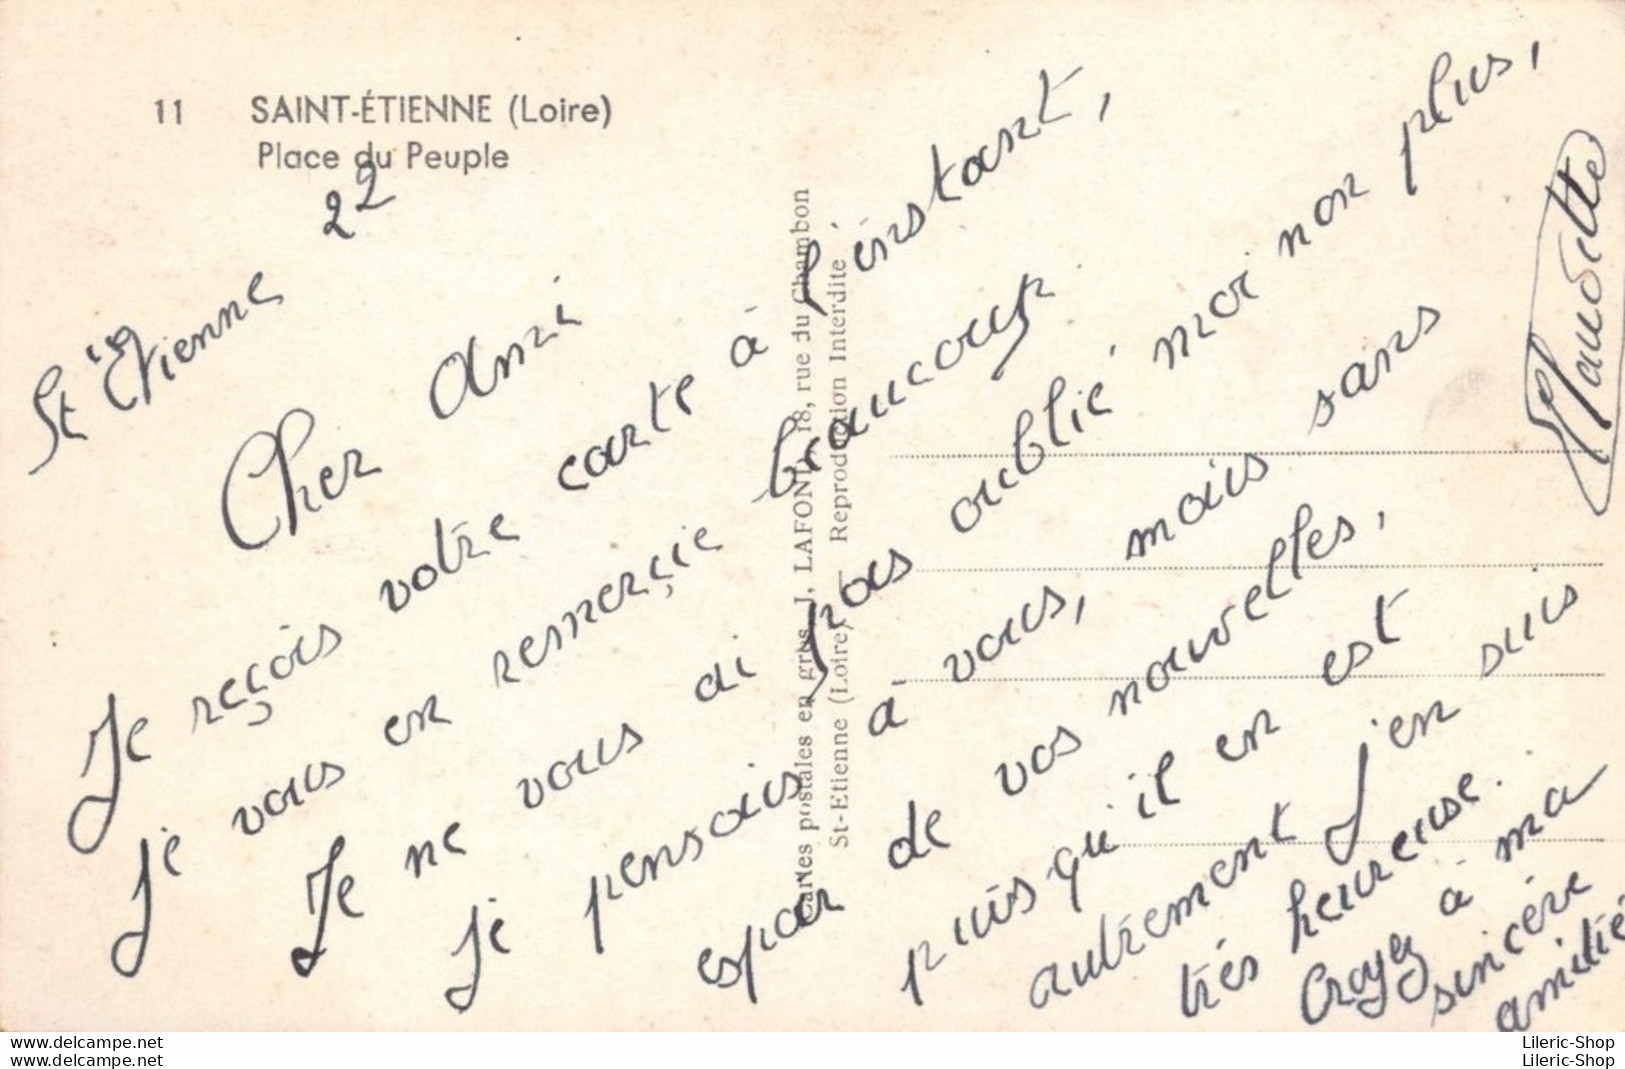 11 SAINT-ÉTIENNE (Loire)
Place du Peuple
St Etienne 22
Cher Ami
Je reçois votre carte à l'instant,
je vous en remerçie beaucoup
Je ne vous ai pas oublié moi non plus,
je pensais à vous, mais sans
espoir de vos nouvelles,
puis qu'il en est
autrement j'en suis
très heureuse.
Croyez à ma
sincère
amitié
Claudette
Cartes postales en gros J. LAFOND, 18, rue du Chambon
St-Etienne (Loire) — Reproduction Interdite
Lileric-Shop.com
Lileric-Shop.com
Lileric-Shop
Lileric-Shop